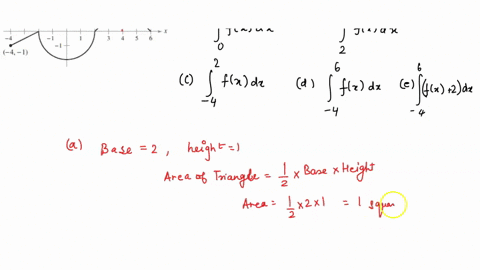 -4 -1 1 3 4 5 6 x
(-4, -1) -1
∫₀ f(x) dx ∫₂ f(x) dx
(c) ∫₋₄² f(x) dx (d) ∫₋₄⁶ f(x) dx (e) ∫₋₄⁶ (f(x)+2) dx
(a) Base = 2 , height = 1
Area of Triangle = 1/2 × Base × Height
Area = 1/2 × 2 × 1 = 1 squar